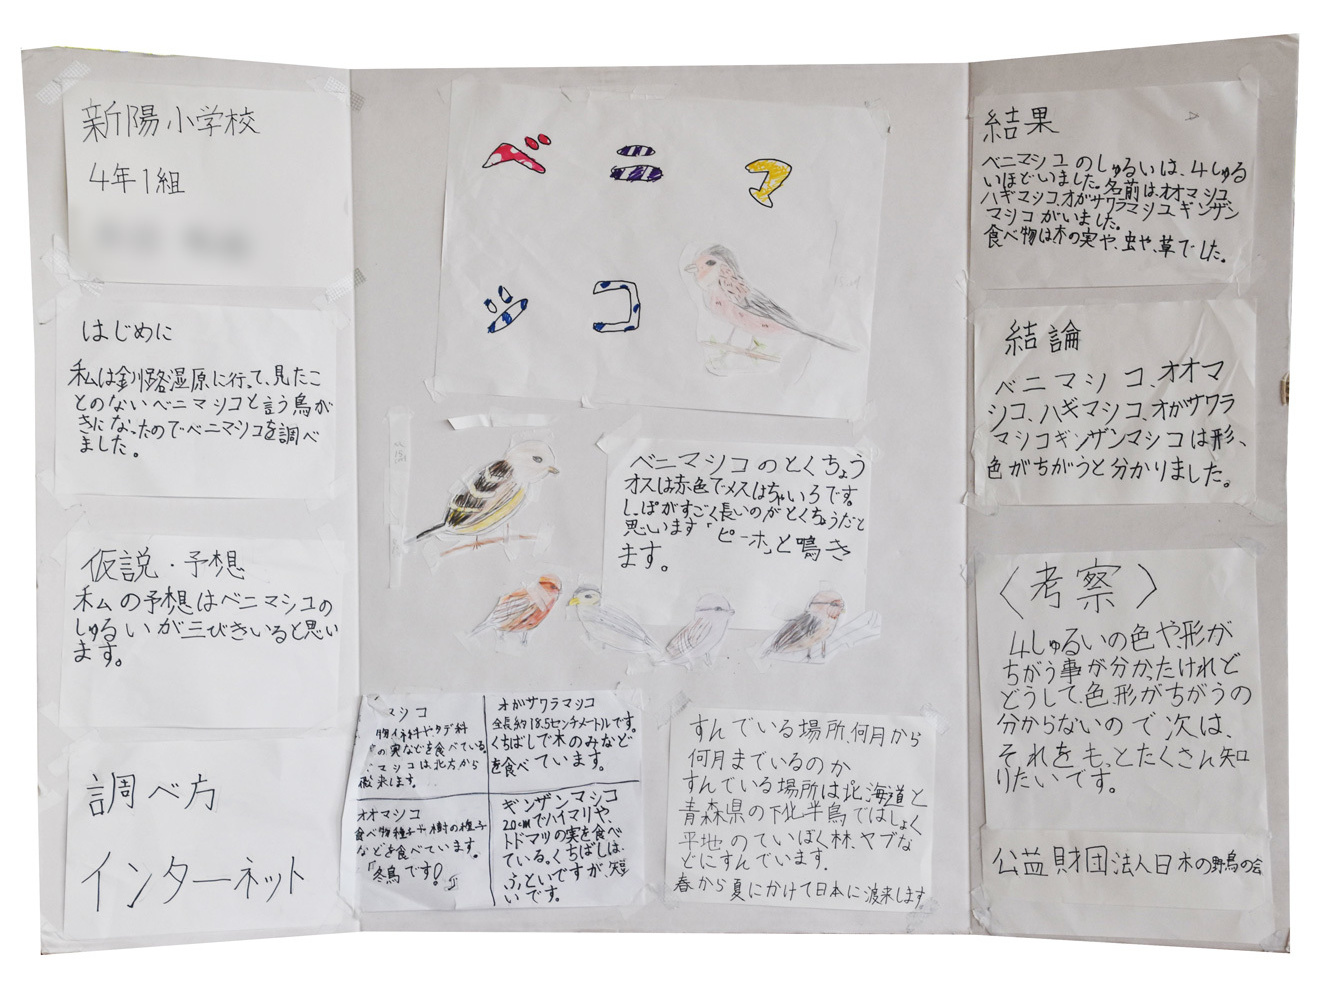 新陽小学校
4年1組
はじめに
私は釧路湿原に行って、見たこ
とのないベニマシコと言う鳥が
きになったのでベニマシコを調べ
ました。
仮説・予想
私の予想はベニマシコの
しゅるいが三びきいると思い
ます。
調べ方
インターネット
ベニマ
シコ
ベニマシコのとくちょう
オスは赤色でメスはちゃいろです。
しっぽがすごく長いのがとくちょうだと
思います「ピーホ」と鳴き
ます。
マシコ
物イネ科やタデ科
の実などを食べている
マシコは北方から
渡来します。
オガサワラマシコ
全長約18.5センチメートルです。
くちばしで木のみなど
を食べています。
オオマシコ
食べ物種子や樹の種子
などを食べています。
「冬鳥です!」
ギンザンマシコ
20cmでハイマリや、
トドマツの実を食べ
ている。くちばしは、
ふといですが、短
いです。
すんでいる場所、何月から
何月までいるのか
すんでいる場所は北海道と
青森県の下北半島ではしょく
平地、のていぼく林、ヤブな
どにすんでいます。
春から夏にかけて日本に渡来します。
結果
ベニマシコのしゅるいは、4しゅる
いほどいました。名前は、オオマシコ、
ハギマシコ、オガサワラマシコ、ギンザン
マシコがいました。
食べ物は木の実や、虫や、草でした。
結論
ベニマシコ、オオマ
シコ、ハギマシコ、オガサワラ
マシコギンザンマシコは形、
色がちがうと分かりました。
〈考察〉
4しゅるいの色や、形が
ちがう事が分かったけれど
どうして、色、形がちがうの
分からないので次は、
それをもっとたくさん知
りたいです。
公益財団法人日本の野鳥の会